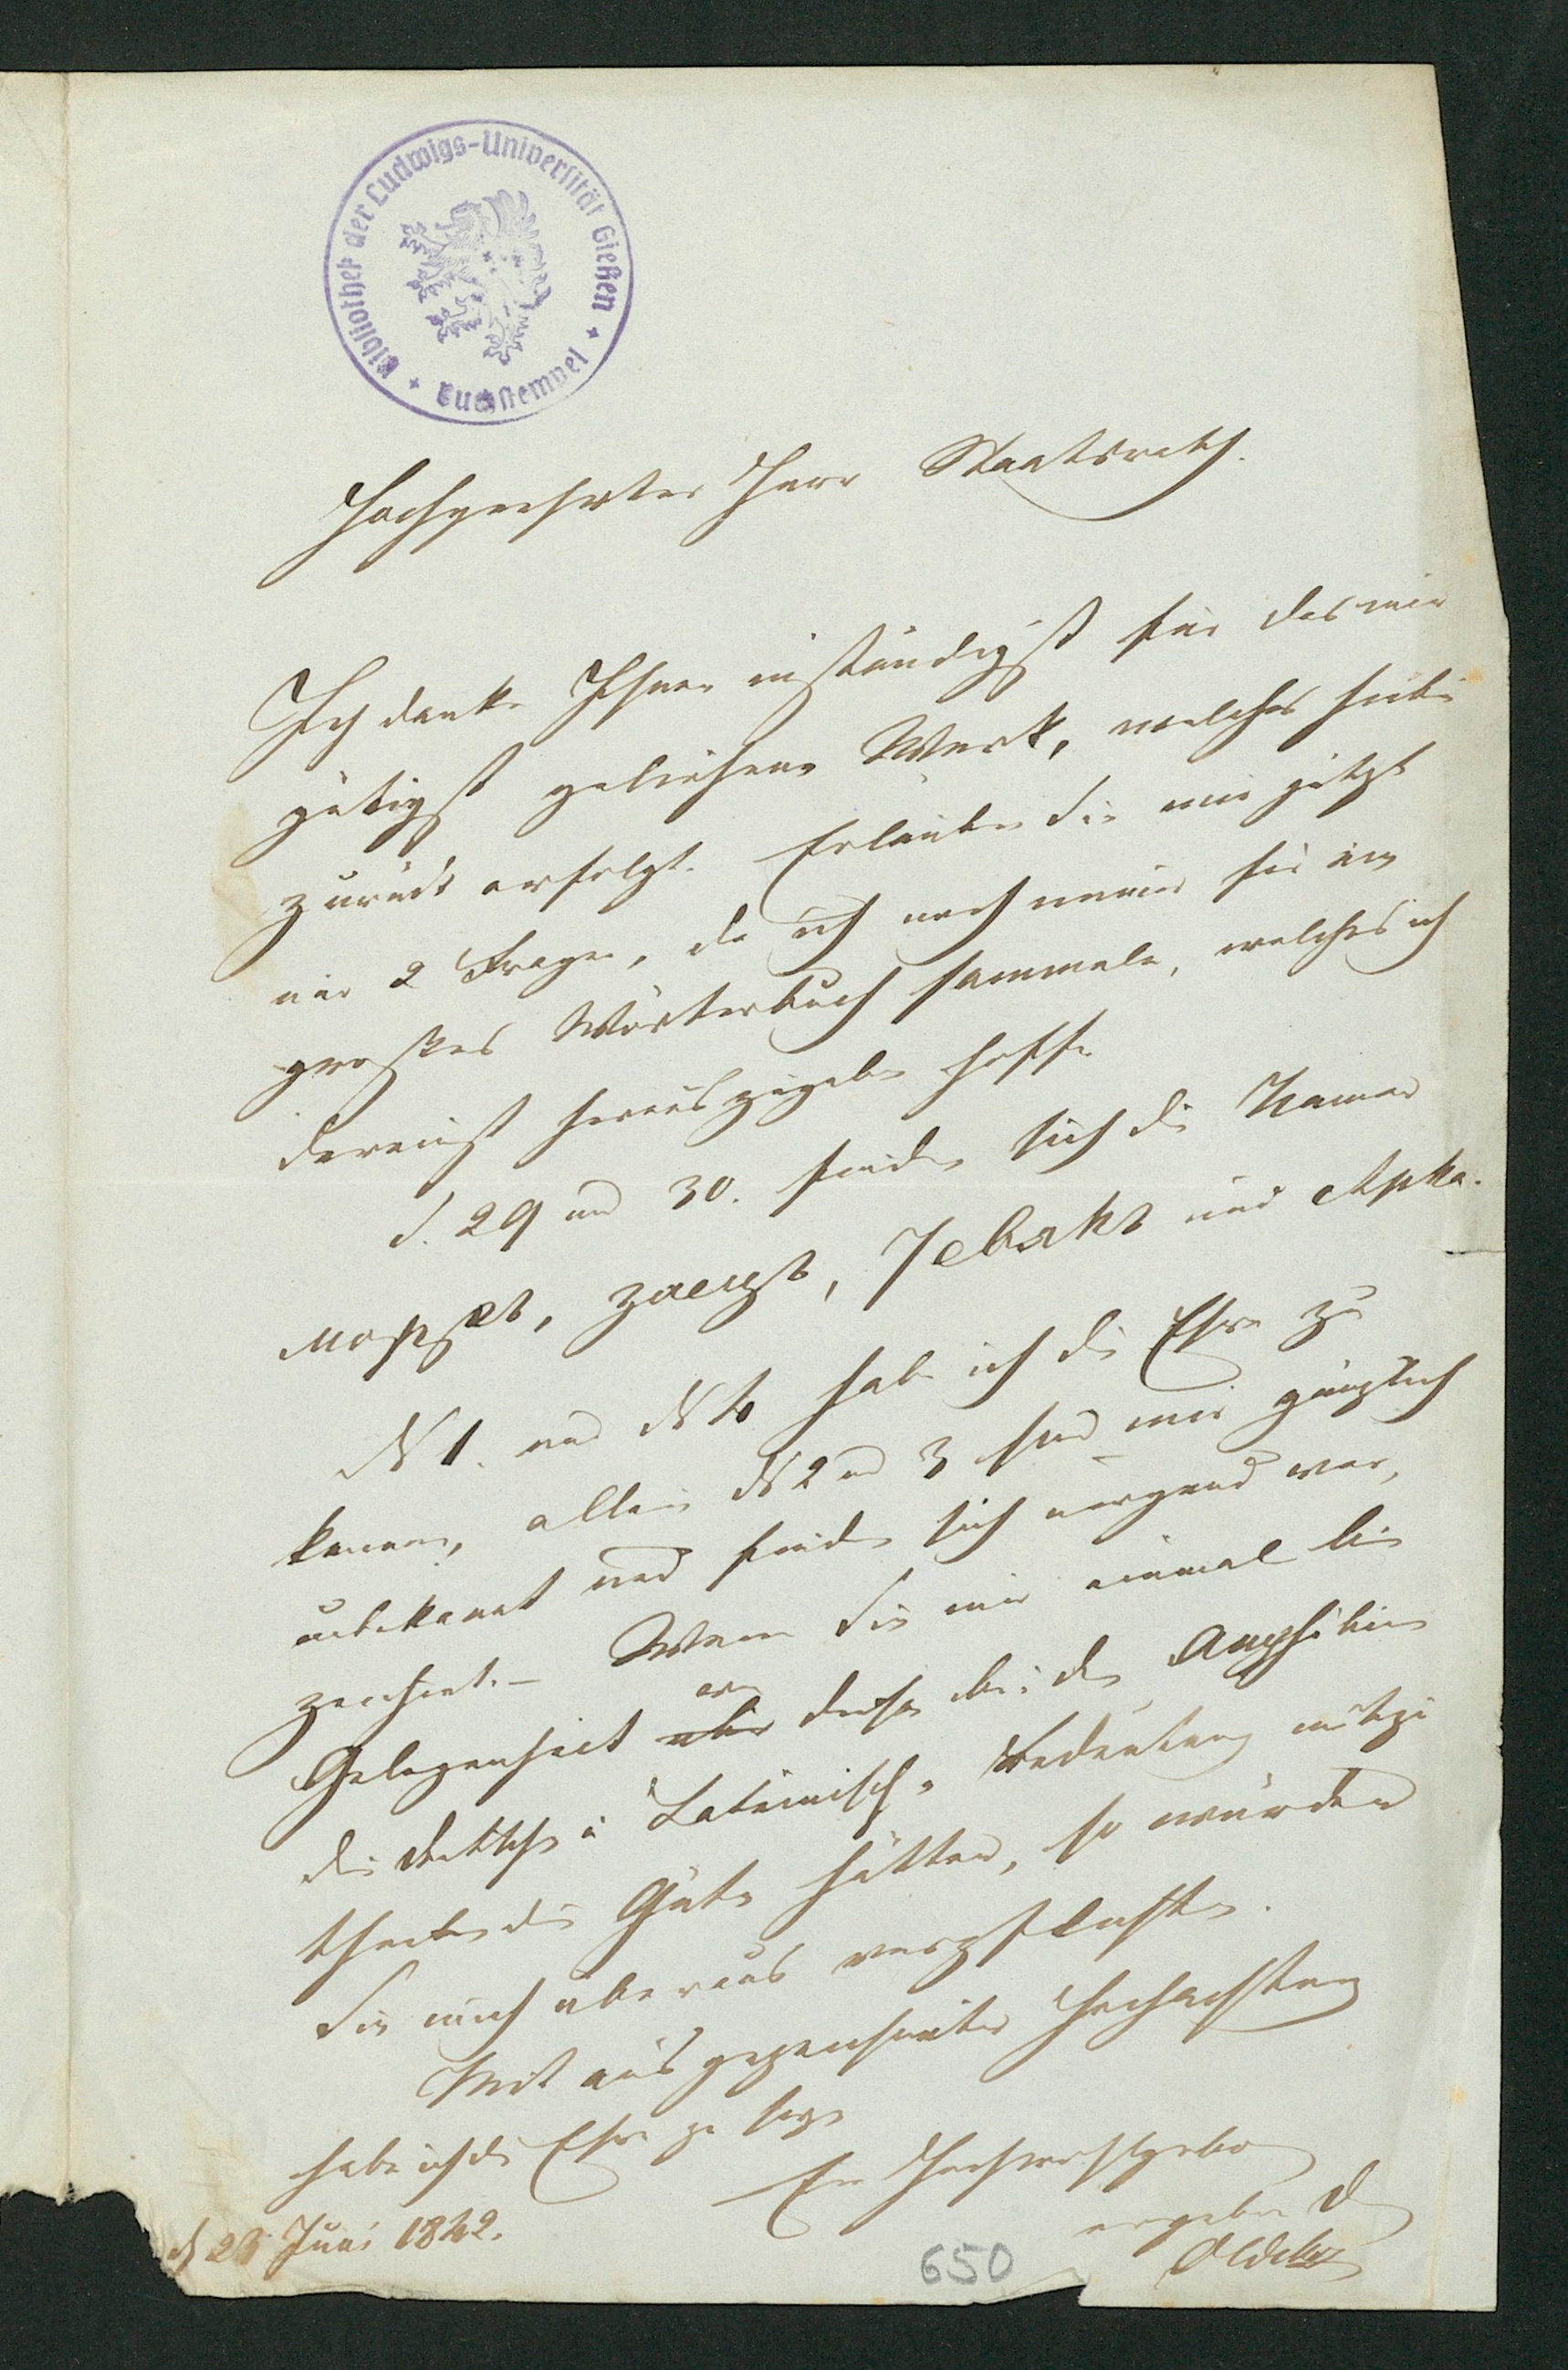 Bibliothek der Ludwigs-Universität Gießen
Buchstempel
Hochgeehrter Herr Staatsrath.
Ich danke Ihnen inständigst für das mir
gütigst geliehene Werk, welches hiebei
zurück erfolgt. Erlauben Sie mir jetzt
nur 2 Fragen, da ich noch immer für ein
großes Wörterbuch sammele, welches ich
dereinst herauszugeben hoffe
S. 29 und 30. finden sich die Namen
моржъ, заецъ, Тевякъ und Арка.
№ 1. und № 4 habe ich die Ehre zu
kennen, allein № 2 und 3 sind mir gänzlich
unbekannt und finden sich nirgend ver,
zeichnet. - Wenn Sie mir einmal bei
Gelegenheit von diesen beiden Amphibien
die deutsche u Lateinische Bedeutung mitzu
theilen die Güte hätten, so würden
Sie mich überaus verpflichten.
Mit ausgezeichneter Hochachtung
habe ich die Ehre zu seyn
Ew Hochwohlgebor
ergebener D
d 23 Juni 1842.
Oldekop
650